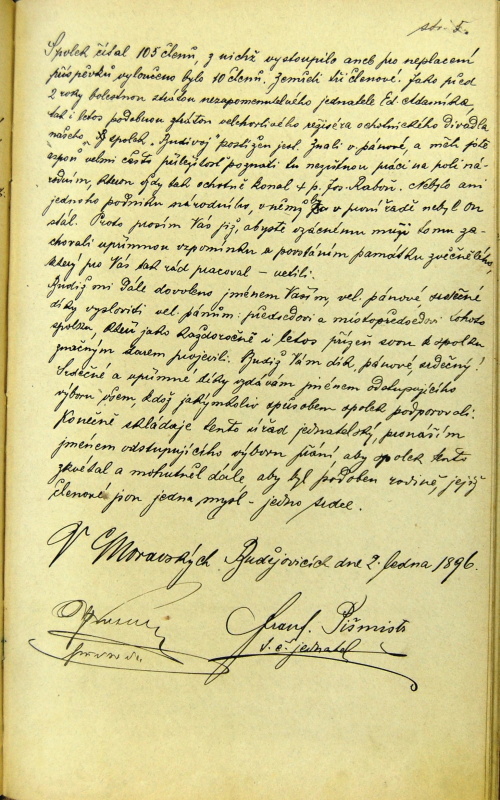 str. 5.
Spolek čítal 105 členů, z nichž vystoupilo aneb pro neplacení
příspěvků vyloučeno bylo 10 členů. Zemřeli tři členové. Jako před
2 roky bolestnou ztrátou nezapomenutelného jednatele Ed. Adamíka,
tak i letos podobnou ztrátou velehorlivého režiséra ochotnického divadla
našeho spolek „Budivoj" postižen jest. Znali v. pánové, a měli jste
aspoň velmi často příležitost poznati tu nezištnou práci na poli ná-
rodním, kterou vždy tak ochotně konal + p. Jos. Rabov. Nebylo ani
jednoho podniku národního, v němž by v první řadě nebyl on
stál. Proto prosím Vás již, abyste vzácnému muži tomu za-
chovali upřímnou vzpomínku a povstáním památku zvěčnělého,
který pro Vás tak rád pracoval – uctili.
Budiž mi dále dovoleno jménem Vaším, vel. pánové srdečné
díky vysloviti vel. pánům: předsedovi a místopředsedovi tohoto
spolku, kteří jako každoročně i letos přízeň svou k spolku
značným darem projevili. Budiž Vám dík, pánové, srdečný!
Srdečné a upřímné díky vzdávám jménem odstupujícího
výboru všem, kdož jakýmkoliv způsobem spolek podporovali.
Konečně skládaje tento úřad jednatelský, pronáším
jménem odstupujícího výboru přání, aby spolek tento
zkvétal a mohutněl dále, aby byl podoben rodině, jejíž
členové jsou jedna mysl – jedno srdce.
V Moravských Budějovicích dne 2. ledna 1896.
Frant. Pišmistr
t. č. jednatel